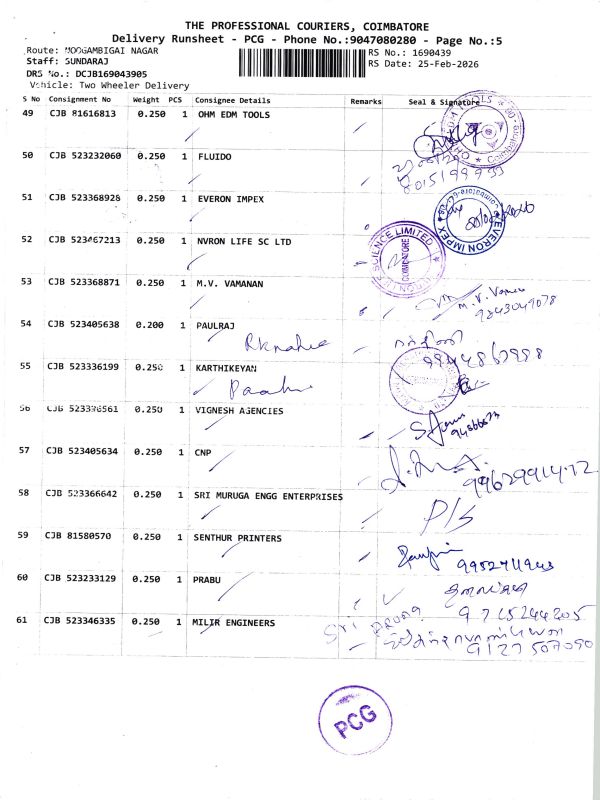 THE PROFESSIONAL COURIERS, COIMBATORE
Delivery Runsheet - PCG - Phone No.:9047080280 - Page No.:5
Route: MOOGAMBIGAI NAGAR RS No.: 1690439
Staff: SUNDARAJ RS Date: 25-Feb-2026
DRS No.: DCJB169043905
Vehicle: Two Wheeler Delivery
S No Consignment No Weight PCS Consignee Details Remarks Seal & Signature
49 CJB 81616813 0.250 1 OHM EDM TOOLS
50 CJB 523232060 0.250 1 FLUIDO
8015199953
51 CJB 523368928 0.250 1 EVERON IMPEX
EVERON IMPEX
52 CJB 523467213 0.250 1 NVRON LIFE SC LTD
SCIENCE LIMITED
COIMBATORE
53 CJB 523368871 0.250 1 M.V. VAMANAN
M.V. Vaman
9843049078
54 CJB 523405638 0.200 1 PAULRAJ
9944867998
55 CJB 523336199 0.250 1 KARTHIKEYAN
56 CJB 523336561 0.250 1 VIGNESH AGENCIES
57 CJB 523405634 0.250 1 CNP
9962991472
58 CJB 523366642 0.250 1 SRI MURUGA ENGG ENTERPRISES
P/S
59 CJB 81580570 0.250 1 SENTHUR PRINTERS
60 CJB 523233129 0.250 1 PRABU
9715244205
61 CJB 523346335 0.250 1 MILIR ENGINEERS
Sri
9127507090
PCG